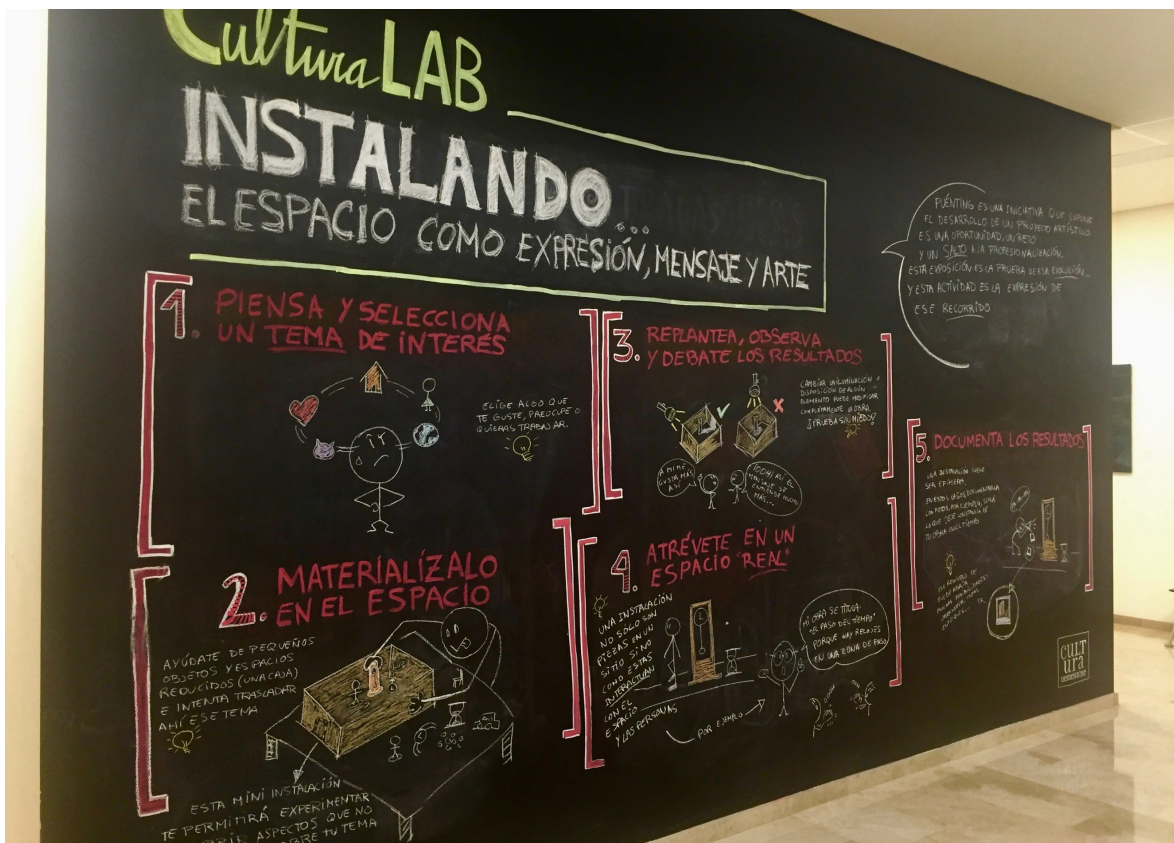 CulturaLAB
INSTALANDO...
EL ESPACIO COMO EXPRESIÓN, MENSAJE Y ARTE
PUÉNTING ES UNA INICIATIVA QUE SUPONE
EL DESARROLLO DE UN PROYECTO ARTÍSTICO.
ES UNA OPORTUNIDAD, UN RETO
Y UN SALTO A LA PROFESIONALIZACIÓN,
ESTA EXPOSICIÓN ES LA PRUEBA DE ESA EVOLUCIÓN...
Y ESTA ACTIVIDAD ES LA EXPRESIÓN DE
ESE RECORRIDO
1. PIENSA Y SELECCIONA
UN TEMA DE INTERÉS
ELIGE ALGO QUE
TE GUSTE, PREOCUPE O
QUIERAS TRABAJAR.
2. MATERIALÍZALO
EN EL ESPACIO
AYÚDATE DE PEQUEÑOS
OBJETOS Y ESPACIOS
REDUCIDOS (UNA CAJA)
E INTENTA TRASLADAR
AHÍ ESE TEMA
ESTA MINI INSTALACIÓN
TE PERMITIRÁ EXPERIMENTAR
ASPECTOS QUE NO
TU TEMA
3. REPLANTEA, OBSERVA
Y DEBATE LOS RESULTADOS
CAMBIAR LA ILUMINACIÓN O
DISPOSICIÓN DE ALGÚN
ELEMENTO PUEDE MODIFICAR
COMPLETAMENTE LA OBRA,
¡PRUEBA SIN MIEDO!
A MI ME
GUSTA MÁS
ASÍ
EL
MENSAJE SE
ENTIENDE MUCHO
MÁS...
4. ATRÉVETE EN UN
ESPACIO "REAL"
UNA INSTALACIÓN
NO SOLO SON
PIEZAS EN UN
SITIO SINO
COMO ESTAS
INTERACTUAN
CON EL
ESPACIO
Y LAS PERSONAS
POR EJEMPLO
MI OBRA SE TITULA:
"EL PASO DEL TIEMPO"
PORQUE HAY RELOJES
EN UNA ZONA DE PASO
5. DOCUMENTA LOS RESULTADOS
UNA INSTALACIÓN SUELE
SER EFÍMERA,
EN ESTOS CASOS DOCUMENTARLA
CON FOTOS, POR EJEMPLO, SERÁ
LO QUE DEJE CONSTANCIA DE
TU OBRA EN EL TIEMPO
CULT
ura